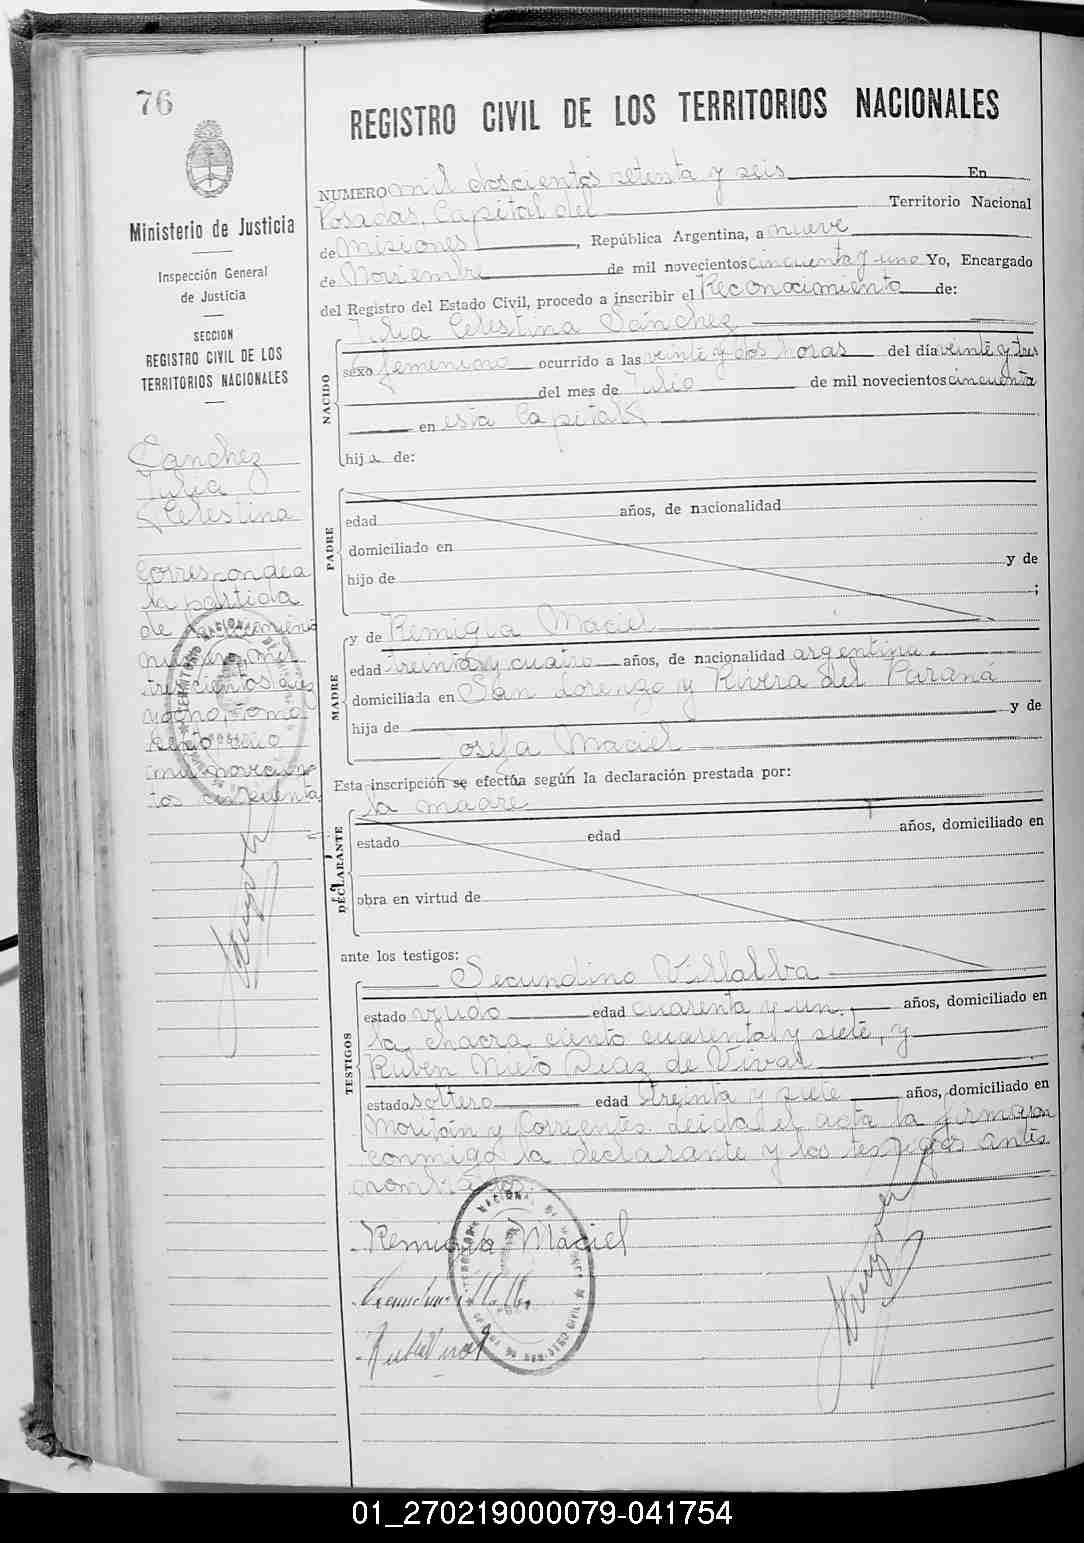 76
REGISTRO CIVIL DE LOS TERRITORIOS NACIONALES
Ministerio de Justicia
Inspección General
de Justicia
SECCION
REGISTRO CIVIL DE LOS
TERRITORIOS NACIONALES
Sanchez
Julia
Celestina
Corresponde a
la partida
de
tos cincuenta
NUMERO mil doscientos setenta y seis En
Posadas, Capital del Territorio Nacional
de Misiones, República Argentina, a nueve
de Noviembre de mil novecientos cincuenta y uno Yo, Encargado
del Registro del Estado Civil, procedo a inscribir el Reconocimiento de:
Julia Celestina Sánchez
NACIDO
sexo femenino ocurrido a las veinte y dos horas del día veinte y tres
del mes de Julio de mil novecientos cincuenta
en esta Capital
hija de:
PADRE
edad años, de nacionalidad
domiciliado en
hijo de y de
;
MADRE
y de Remigia Maciel
edad treinta y cuatro años, de nacionalidad argentina.
domiciliada en San Lorenzo y Rivera del Paraná
hija de y de
Josefa Maciel
Esta inscripción se efectúa según la declaración prestada por:
la madre
DECLARANTE
estado edad años, domiciliado en
obra en virtud de
ante los testigos:
Secundino Villalba
TESTIGOS
estado viudo edad cuarenta y un años, domiciliado en
la chacra ciento cuarenta y siete, y
Ruben Nieto Diaz de Vivar
estado soltero edad treinta y siete años, domiciliado en
Moritán y Corrientes. Leida el acta la firmaron
conmigo la declarante y los testigos antes
nombrados.
Remigia Maciel
01_270219000079-041754